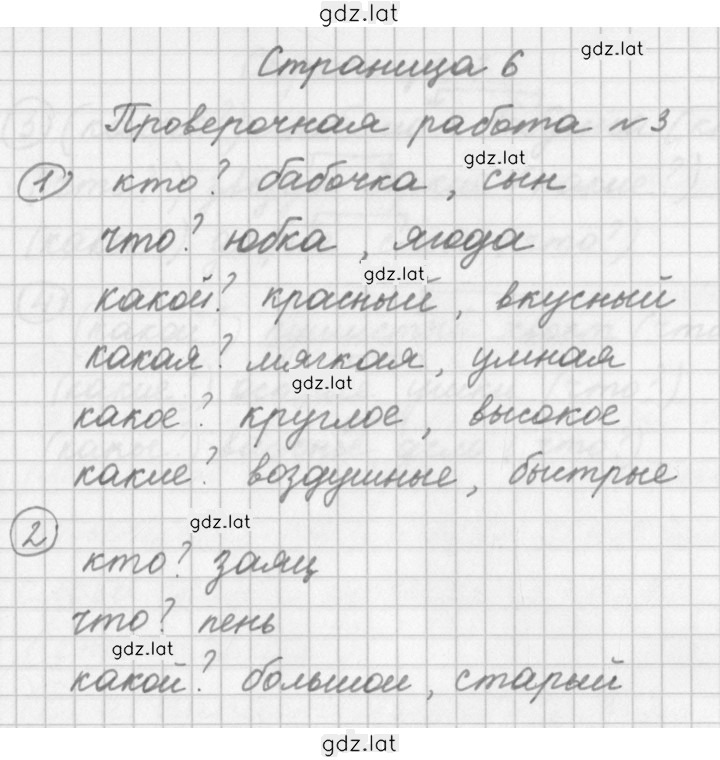 gdz.lat
Страница 6
gdz.lat
Проверочная работа №3
gdz.lat
1 кто? бабочка, сын
что? юбка, ягода
gdz.lat
какой? красный, вкусный
какая? мягкая, умная
gdz.lat
какое? круглое, высокое
какие? воздушные, быстрые
gdz.lat
2
кто? заяц
что? пень
gdz.lat
какой? большой, старый
gdz.lat